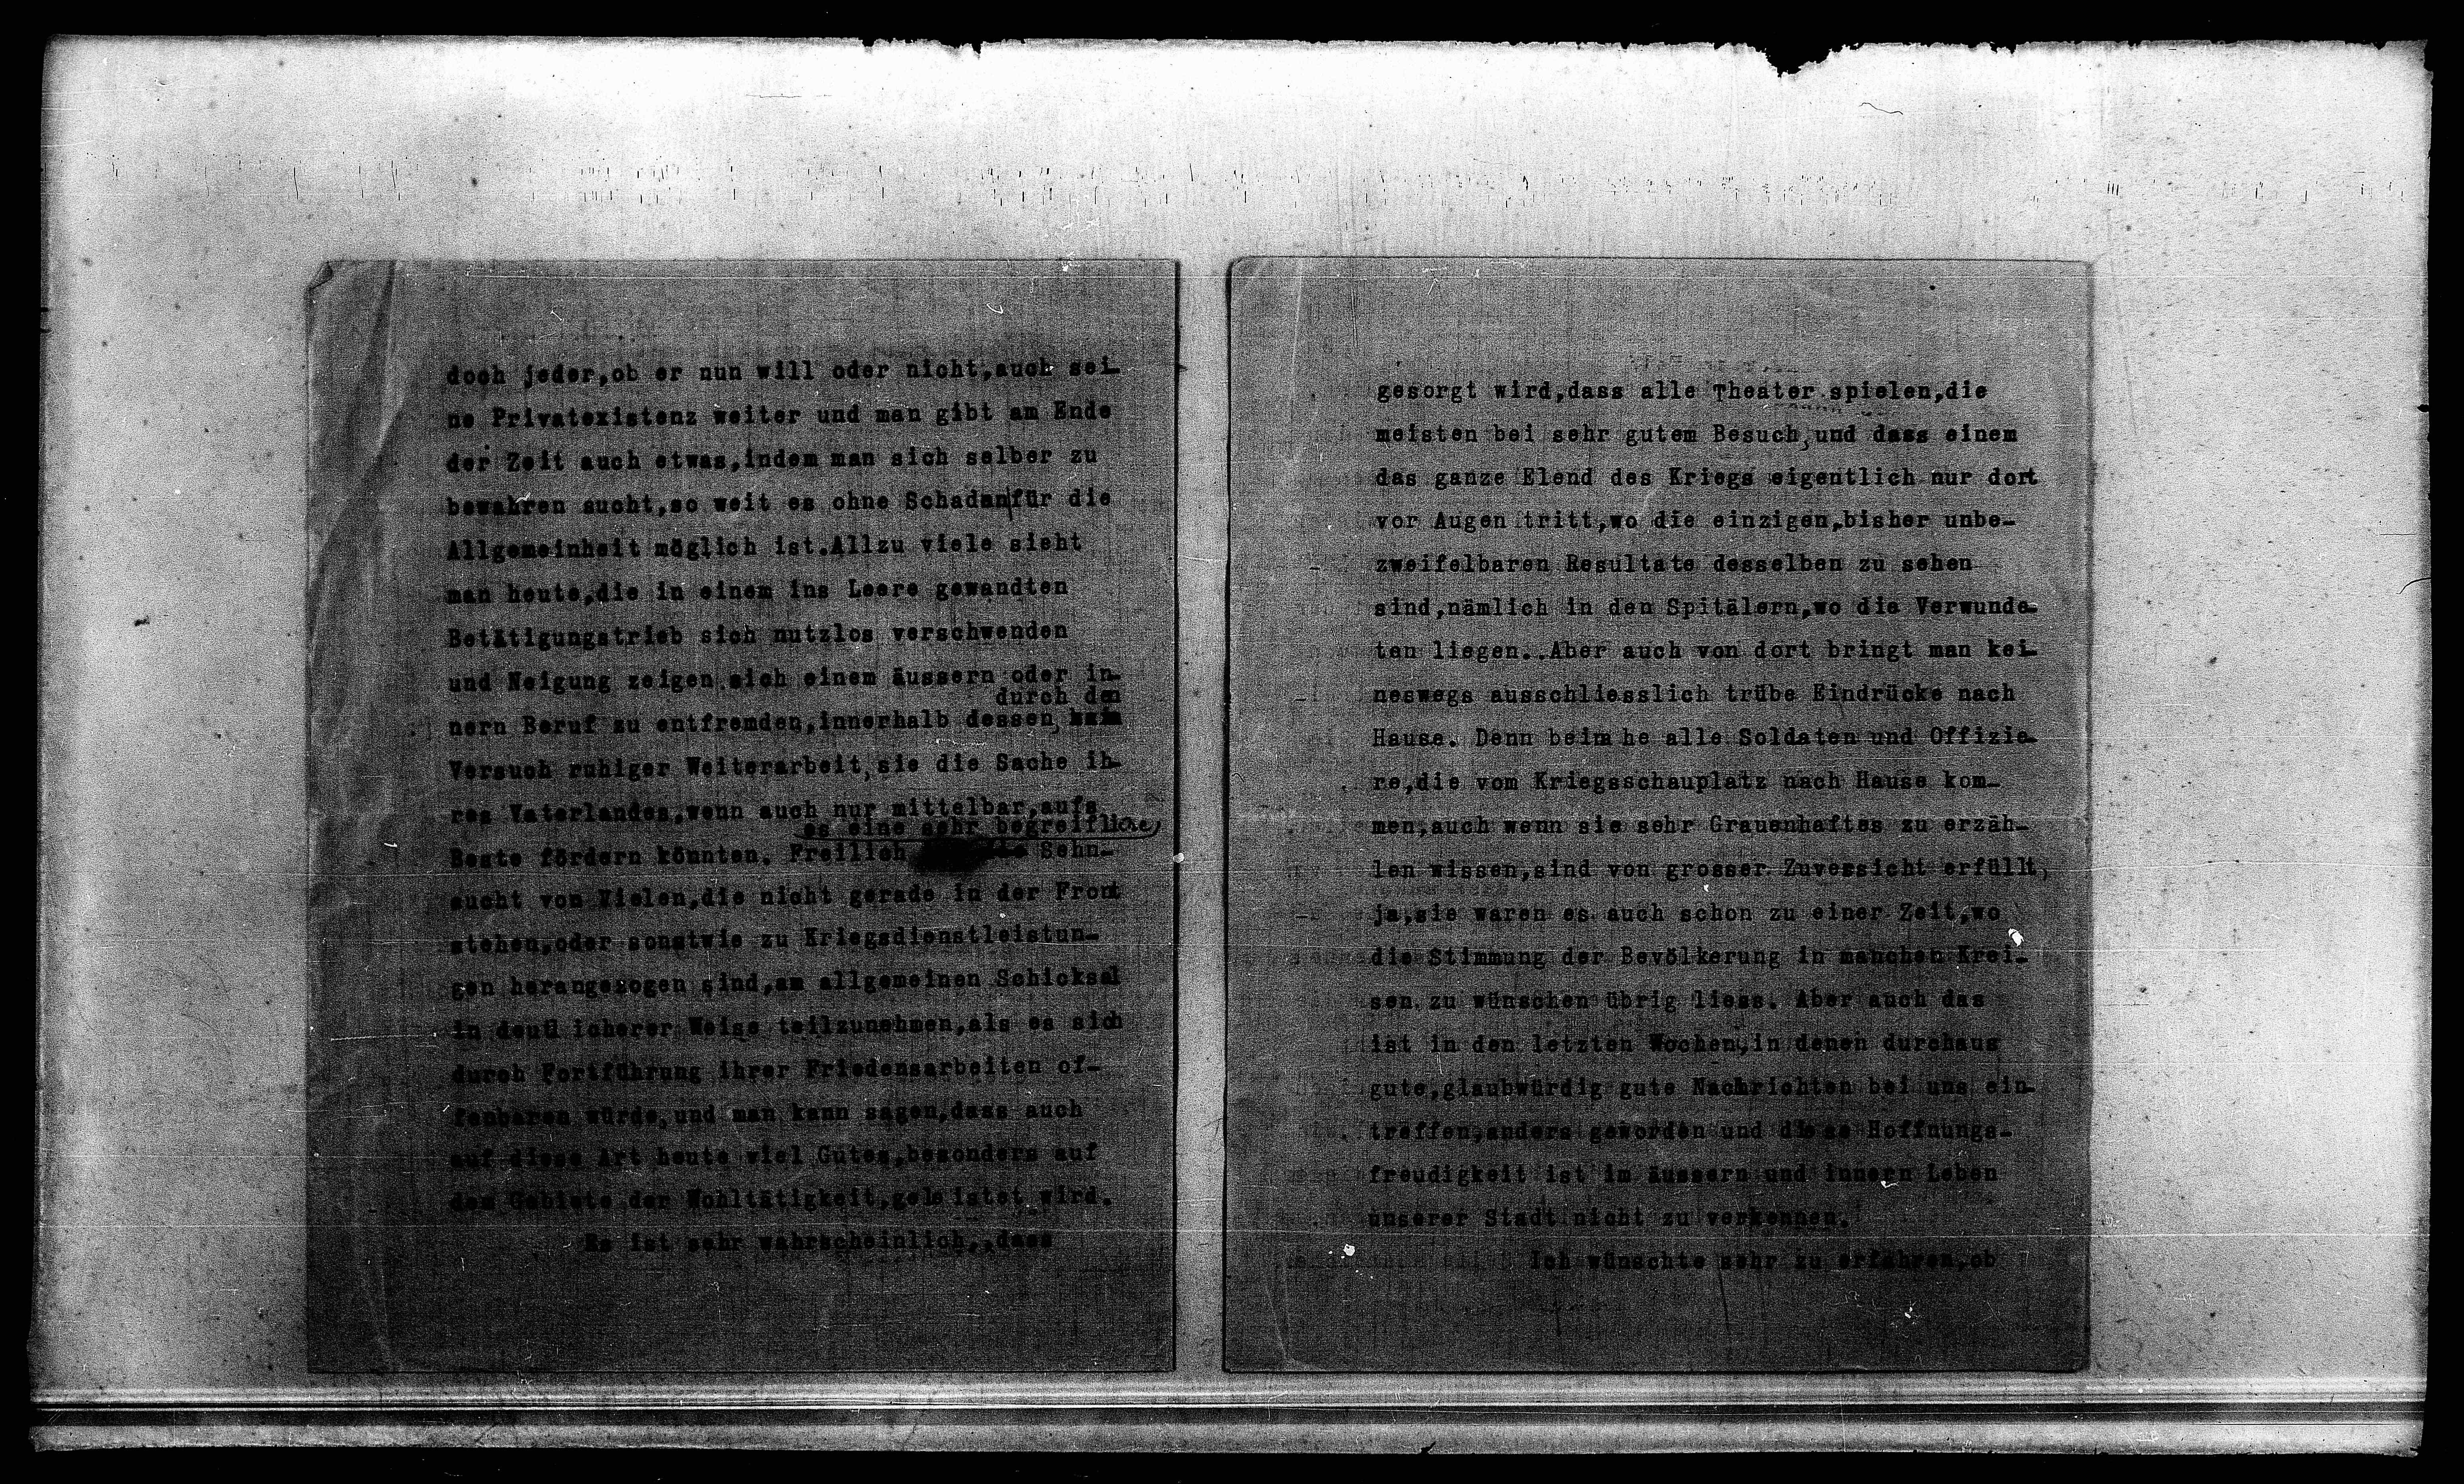 doch jeder,ob er nun will oder nicht,auch sei-
ne Privatexistenz weiter und man gibt am Ende
der Zeit auch etwas,indem man sich selber zu
bewahren sucht,so weit es ohne Schaden für die
Allgemeinheit möglich ist.Allzu viele sieht
man heute,die in einem ins Leere gewandten
Betätigungstrieb sich nutzlos verschwenden
und Neigung zeigen sich einem äussern oder in-
durch den
nern Beruf zu entfremden,innerhalb dessen,
Versuch ruhiger Weiterarbeit,sie die Sache ih-
res Vaterlandes,wenn auch nur mittelbar,aufs
es eine sehr begreifliche
Beste fördern könnten. Freilich Sehn-
sucht von Vielen,die nicht gerade in der Front
stehen,oder sonstwie zu Kriegsdienstleistun-
gen herangezogen sind,am allgemeinen Schicksal
in deutlicherer Weise teilzunehmen,als es sich
durch Fortführung ihrer Friedensarbeiten of-
fenbaren würde,und man kann sagen,dass auch
auf diese Art heute viel Gutes,besonders auf
dem Gebiete der Wohltätigkeit,geleistet wird.
Es ist sehr wahrscheinlich,,dass
gesorgt wird,dass alle Theater spielen,die
meisten bei sehr gutem Besuch,und dass einem
das ganze Elend des Kriegs eigentlich nur dort
vor Augen tritt,wo die einzigen,bisher unbe-
zweifelbaren Resultate desselben zu sehen
sind,nämlich in den Spitälern,wo die Verwunde-
ten liegen..Aber auch von dort bringt man kei-
neswegs ausschliesslich trübe Eindrücke nach
Hause. Denn beinahe alle Soldaten und Offizie-
re,die vom Kriegsschauplatz nach Hause kom-
men,auch wenn sie sehr Grauenhaftes zu erzäh-
len wissen,sind von grosser Zuversicht erfüllt,
ja,sie waren es auch schon zu einer Zeit,wo
die Stimmung der Bevölkerung in manchen Krei-
sen zu wünschen übrig liess. Aber auch das
ist in den letzten Wochen,in denen durchaus
gute,glaubwürdig gute Nachrichten bei uns ein-
treffen,anders geworden und diese Hoffnungs-
freudigkeit ist im äussern und innern Leben
unserer Stadt nicht zu verkennen.
Ich wünschte sehr zu erfahren,ob